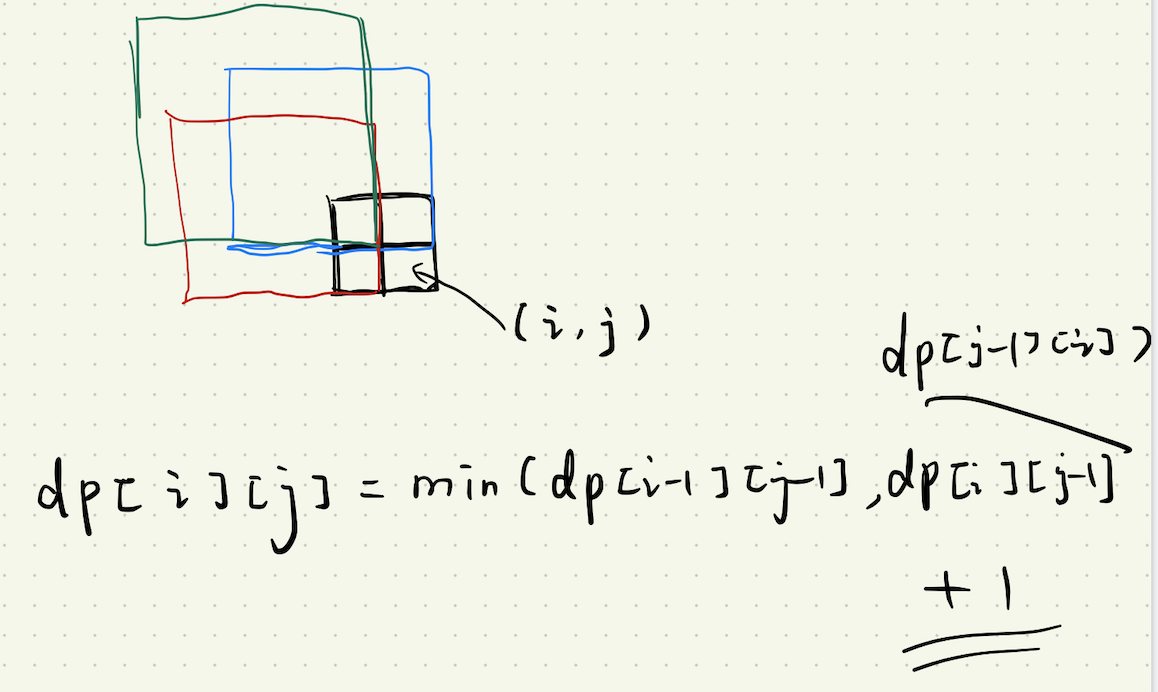 (i,j)
dp[j-1][i])
dp[i][j] = min(dp[i-1][j-1],dp[i][j-1]
+1